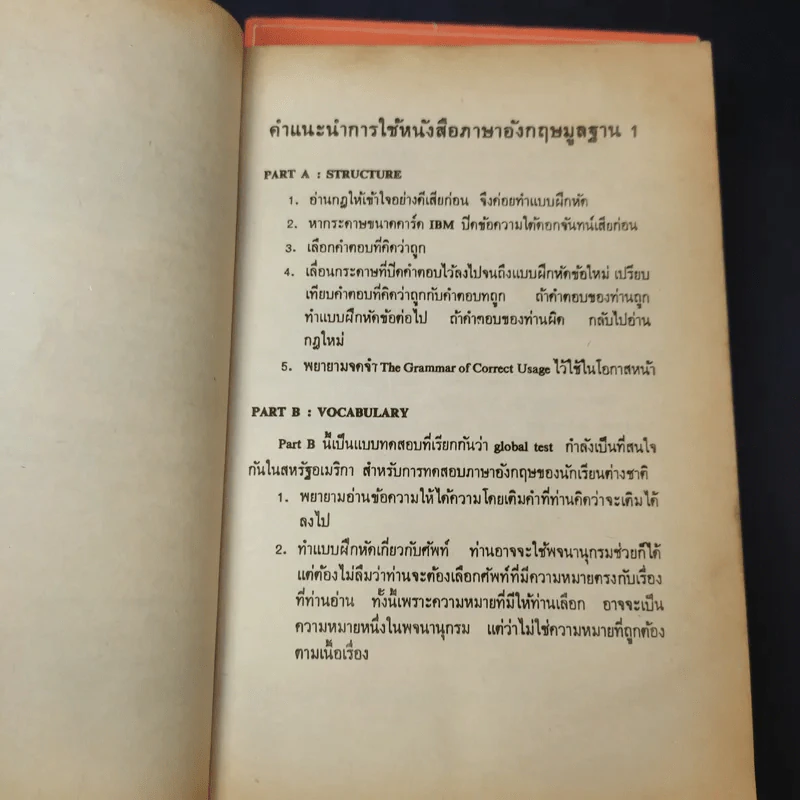 คำแนะนำการใช้หนังสือภาษาอังกฤษมูลฐาน 1
PART A : STRUCTURE
1. อ่านกฎให้เข้าใจอย่างดีเสียก่อน จึงค่อยทำแบบฝึกหัด
2. หากระดาษขนาดคาร์ด IBM ปิดข้อความใต้ดอกจันทน์เสียก่อน
3. เลือกคำตอบที่คิดว่าถูก
4. เลื่อนกระดาษที่ปิดคำตอบไว้ลงไปจนถึงแบบฝึกหัดข้อใหม่ เปรียบ
เทียบคำตอบที่คิดว่าถูกกับคำตอบทถูก ถ้าคำตอบของท่านถูก
ทำแบบฝึกหัดข้อต่อไป ถ้าคำตอบของท่านผิด กลับไปอ่าน
กฎใหม่
5. พยายามจดจำ The Grammar of Correct Usage ไว้ใช้ในโอกาสหน้า
PART B : VOCABULARY
Part B นี้เป็นแบบทดสอบที่เรียกกันว่า global test กำลังเป็นที่สนใจ
กันในสหรัฐอเมริกา สำหรับการทดสอบภาษาอังกฤษของนักเรียนต่างชาติ
1. พยายามอ่านข้อความให้ได้ความโดยเติมคำที่ท่านคิดว่าจะเติมได้
ลงไป
2. ทำแบบฝึกหัดเกี่ยวกับศัพท์ ท่านอาจจะใช้พจนานุกรมช่วยก็ได้
แต่ต้องไม่ลืมว่าท่านจะต้องเลือกศัพท์ที่มีความหมายตรงกับเรื่อง
ที่ท่านอ่าน ทั้งนี้เพราะความหมายที่มีให้ท่านเลือก อาจจะเป็น
ความหมายหนึ่งในพจนานุกรม แต่ว่าไม่ใช่ความหมายที่ถูกต้อง
ตามเนื้อเรื่อง